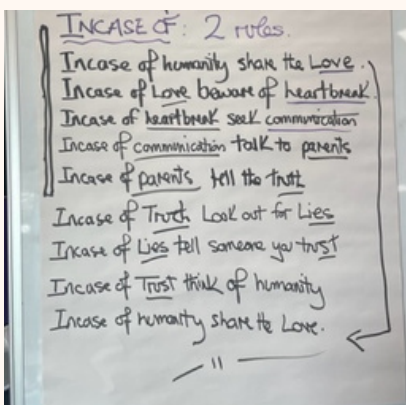 INCASE OF: 2 rules.
Incase of humanity share the Love.
Incase of Love beware of heartbreak
Incase of heartbreak seek communication
Incase of communication talk to parents
Incase of parents tell the truth
Incase of Truth Look out for Lies
Incase of Lies tell someone you trust
Incase of Trust think of humanity
Incase of humanity share the Love.